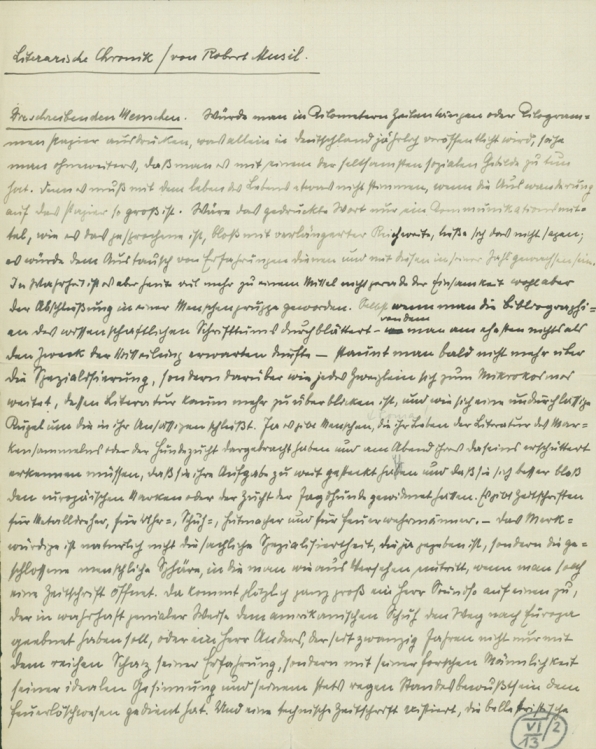 Literarische Chronik / von Robert Musil.
Die schreibenden Menschen. Würde man in Kilometern Zeilenlängen oder Kilogram=
men Papier ausdrücken, was allein in Deutschland jährlich veröffentlicht wird, sähe
man ohneweiters, daß man es mit einem der seltsamsten sozialen Gebilde zu tun
hat. Denn es muß mit dem Leben des Lebens etwas nicht stimmen, wenn die Auswanderung
auf das Papier so groß ist. Wäre das gedruckte Wort nur ein Kommunikationsmit=
tel, wie es das gesprochene ist, bloß mit verlängerter Reichweite, ließe sich das nicht sagen;
es würde dem Austausch von Erfahrungen dienen und mit diesen in seiner Zahl gewachsen sein.
In Wahrheit ist es aber heute auf mehr zu einem Mittel nicht gerade der Einsamkeit wohl aber
der Abschließung in einer Menschengruppe geworden. Selbst wenn man die Bibliographi=
en des wissenschaftlichen Schrifttums durchblättert – von dem man am ehesten nichts als
den Zweck der Mitteilung erwarten dürfte – staunt man bald nicht mehr über
die Spezialisierung, sondern darüber wie jedes Zweiglein sich zum Mikrokosmos
weitet, dessen Literatur kaum mehr zu überblicken ist, und wie sich eine undurchlässige
Kugel um die in ihr Ansässigen schließt. Ja es gibt Menschen, die ihr Leben der Literatur des Mar=
kensammelns oder der Hundezucht dargebracht haben und am Abend ihres Daseins erschüttert
erkennen müssen, daß sie ihre Aufgabe zu weit gesteckt haben und daß sie sich besser bloß
den europäischen Marken oder der Zucht der Jagdhunde gewidmet hätten. Es gibt Zeitschriften
für Metalldreher, für Uhr=, Schuh=, Hutmacher und für Feuerwehrmänner. – Das Merk=
würdige ist natürlich nicht die sachliche Spezialisiertheit, die ja gegeben ist, sondern die ge=
schlossene menschliche Sphäre, in die man wie aus Versehen eintritt, wenn man solch
eine Zeitschrift öffnet. Da kommt plötzlich ganz groß ein Herr auf einen zu,
der in wahrhaft genialer Weise dem amerikanischen Schuh den Weg nach Europa
geebnet haben soll, oder ein Herr Anders, der seit zwanzig Jahren nicht nur mit
dem reichen Schatz seiner Erfahrung, sondern mit seiner forschen Männlichkeit
seiner idealen Gesinnung und seinem stets regen Standesbewußtsein dem
Feuerlöschwesen gedient hat. Und eine technische Zeitschrift existiert, die belletristische
VI/2
13